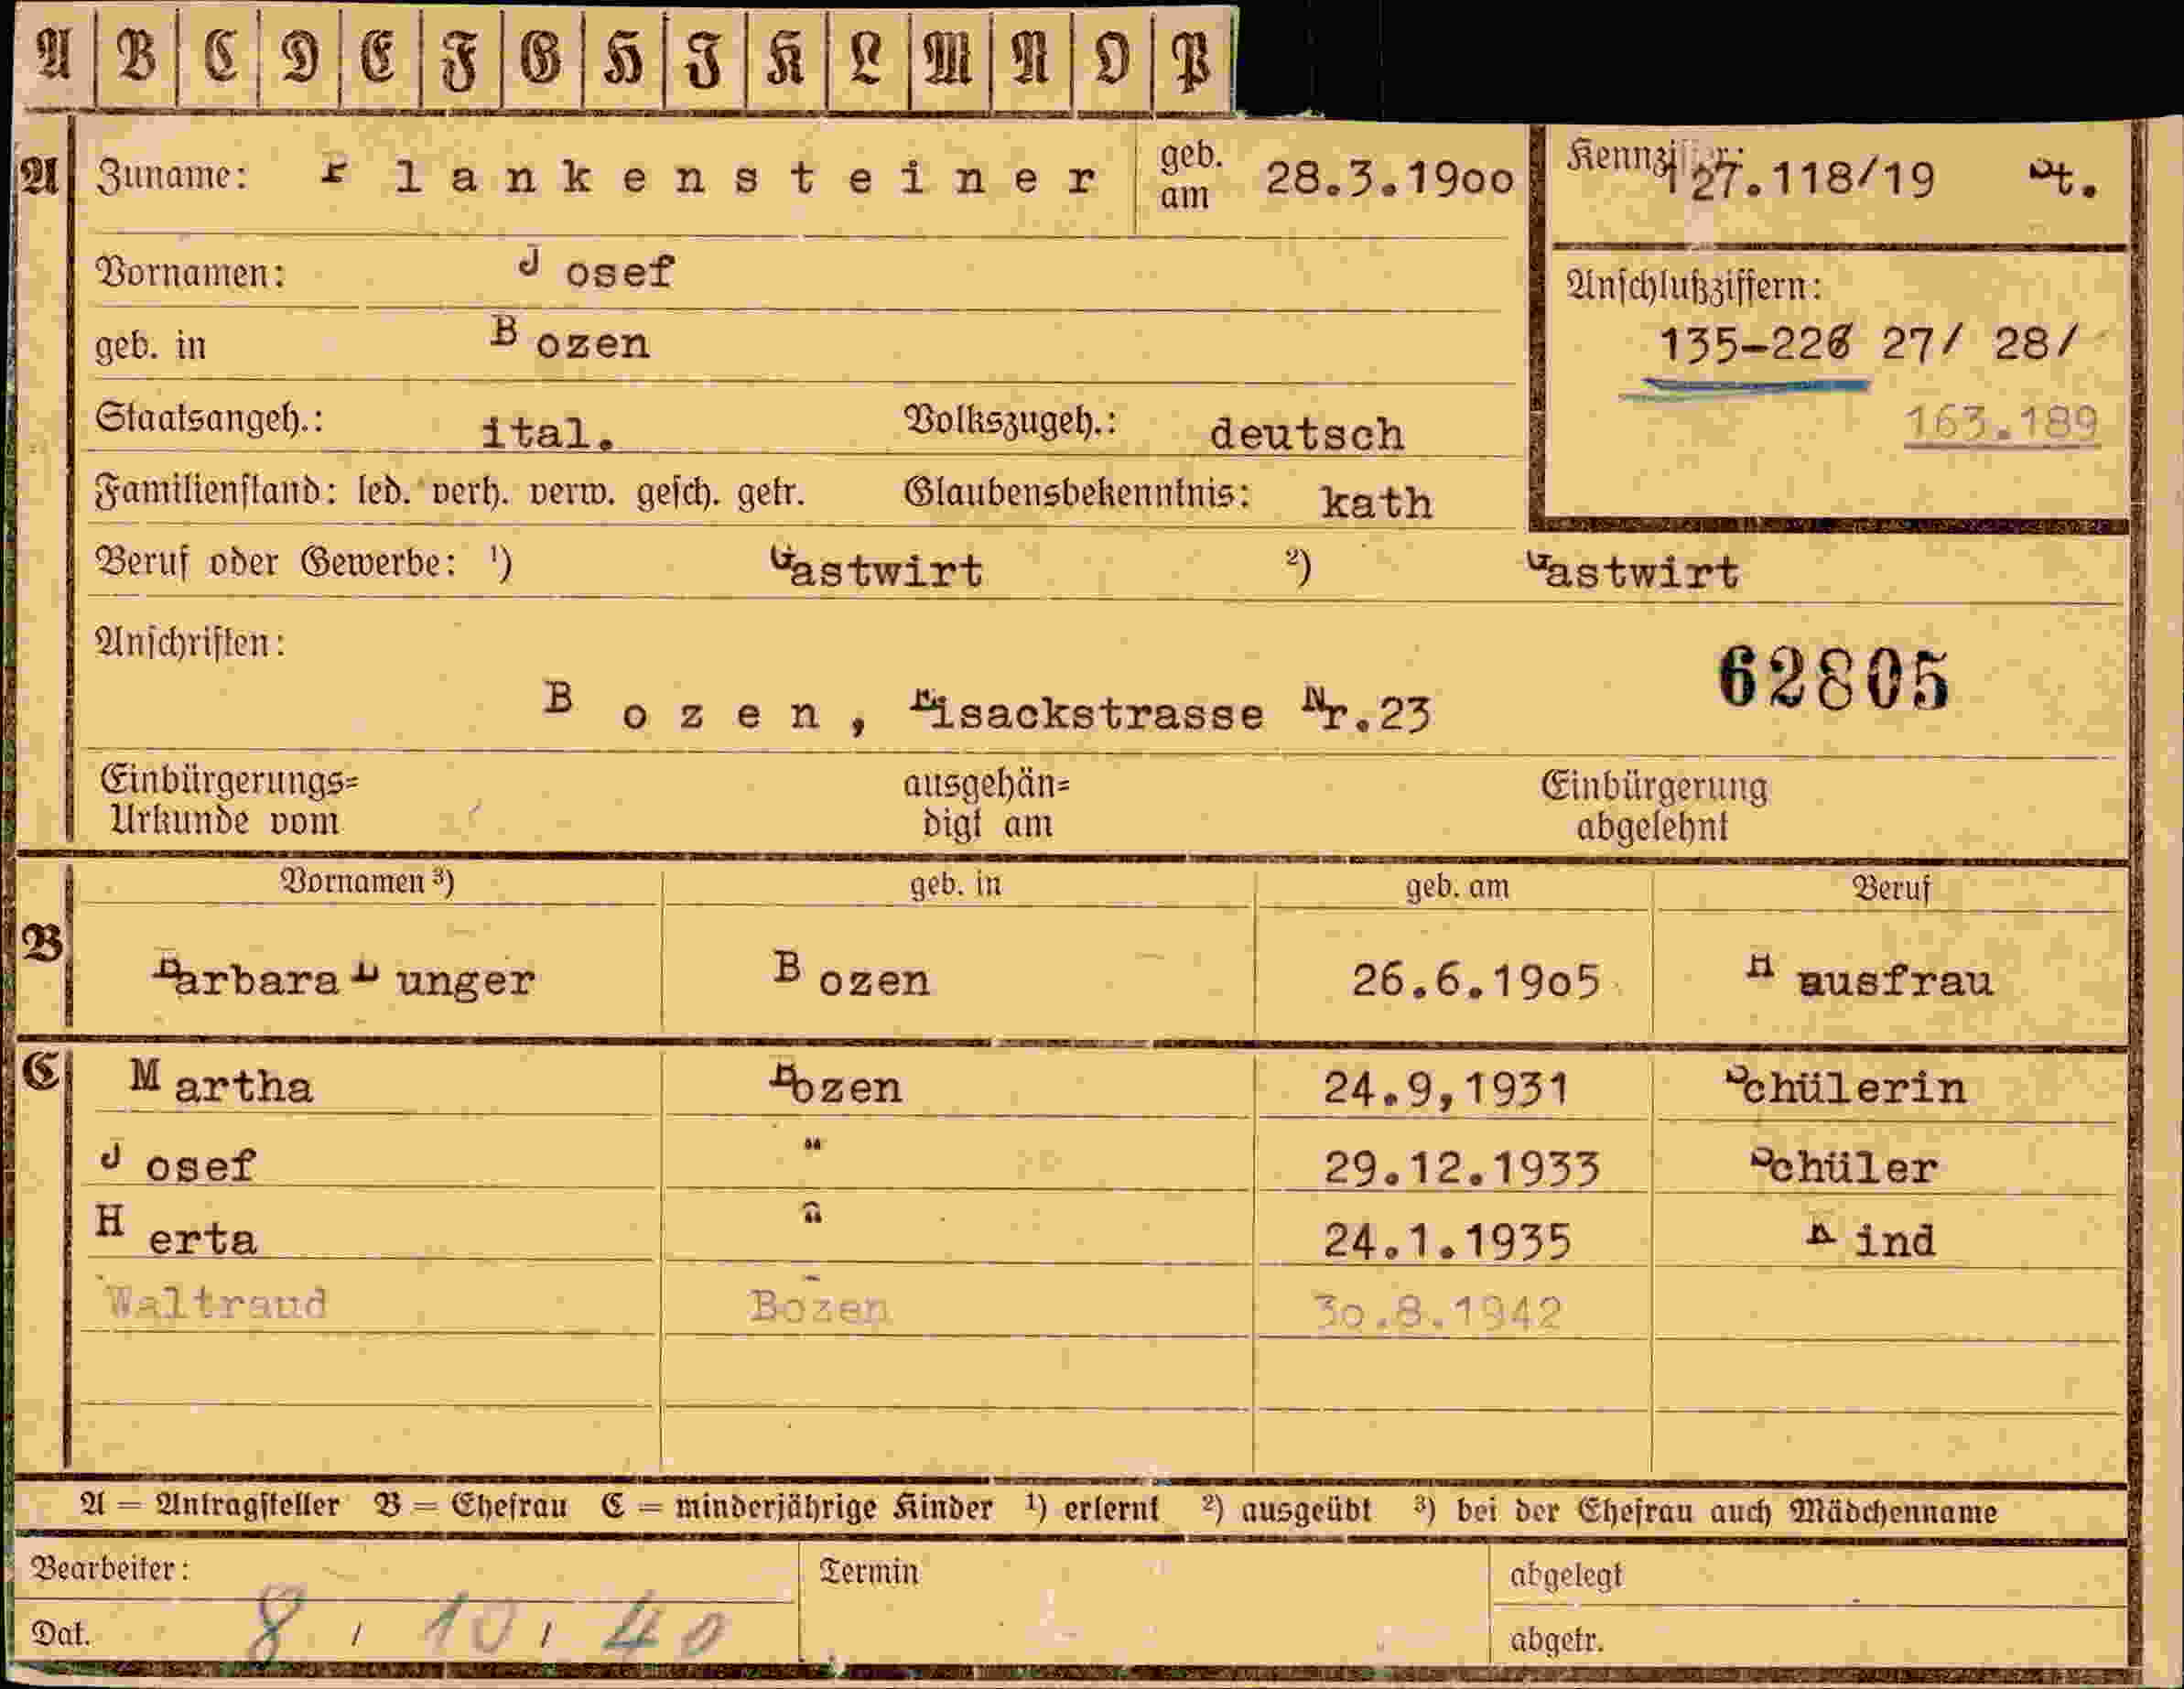 A B C D E F G H I K L M N O P
A Zuname: Plankensteiner geb. am 28.3.1900 Kennziffer: 127.118/19 St.
Vornamen: Josef
geb. in Bozen
Anschlußziffern:
135-226 27/ 28/
163.189
Staatsangeh.: ital. Volkszugeh.: deutsch
Familienstand: led. verh. verw. gesch. getr. Glaubensbekenntnis: kath
Beruf oder Gewerbe: ¹) Gastwirt ²) Gastwirt
Anschriften:
62805
Bozen, Eisackstrasse Nr.23
Einbürgerungs=
Urkunde vom
ausgehän=
digt am
Einbürgerung
abgelehnt
Vornamen ³) geb. in geb. am Beruf
B Barbara Dunger Bozen 26.6.1905 Hausfrau
C Martha Bozen 24.9,1931 Schülerin
Josef " 29.12.1933 Schüler
Herta " 24.1.1935 Kind
Waltraud Bozen 30.8.1942
A = Antragsteller B = Ehefrau C = minderjährige Kinder ¹) erlernt ²) ausgeübt ³) bei der Ehefrau auch Mädchenname
Bearbeiter: Termin abgelegt
Dat. 8 / 10 / 40 abgetr.